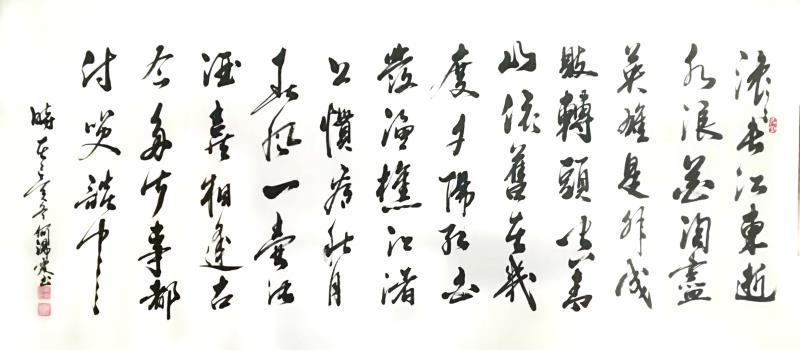 滚々長江東逝
水浪花淘盡
英雄是非成
敗轉頭空青
山依舊在幾
度夕陽紅白
發漁樵江渚
上慣看秋月
春風一壺濁
酒喜相逢古
今多少事都
付笑談中
時在亥冬何